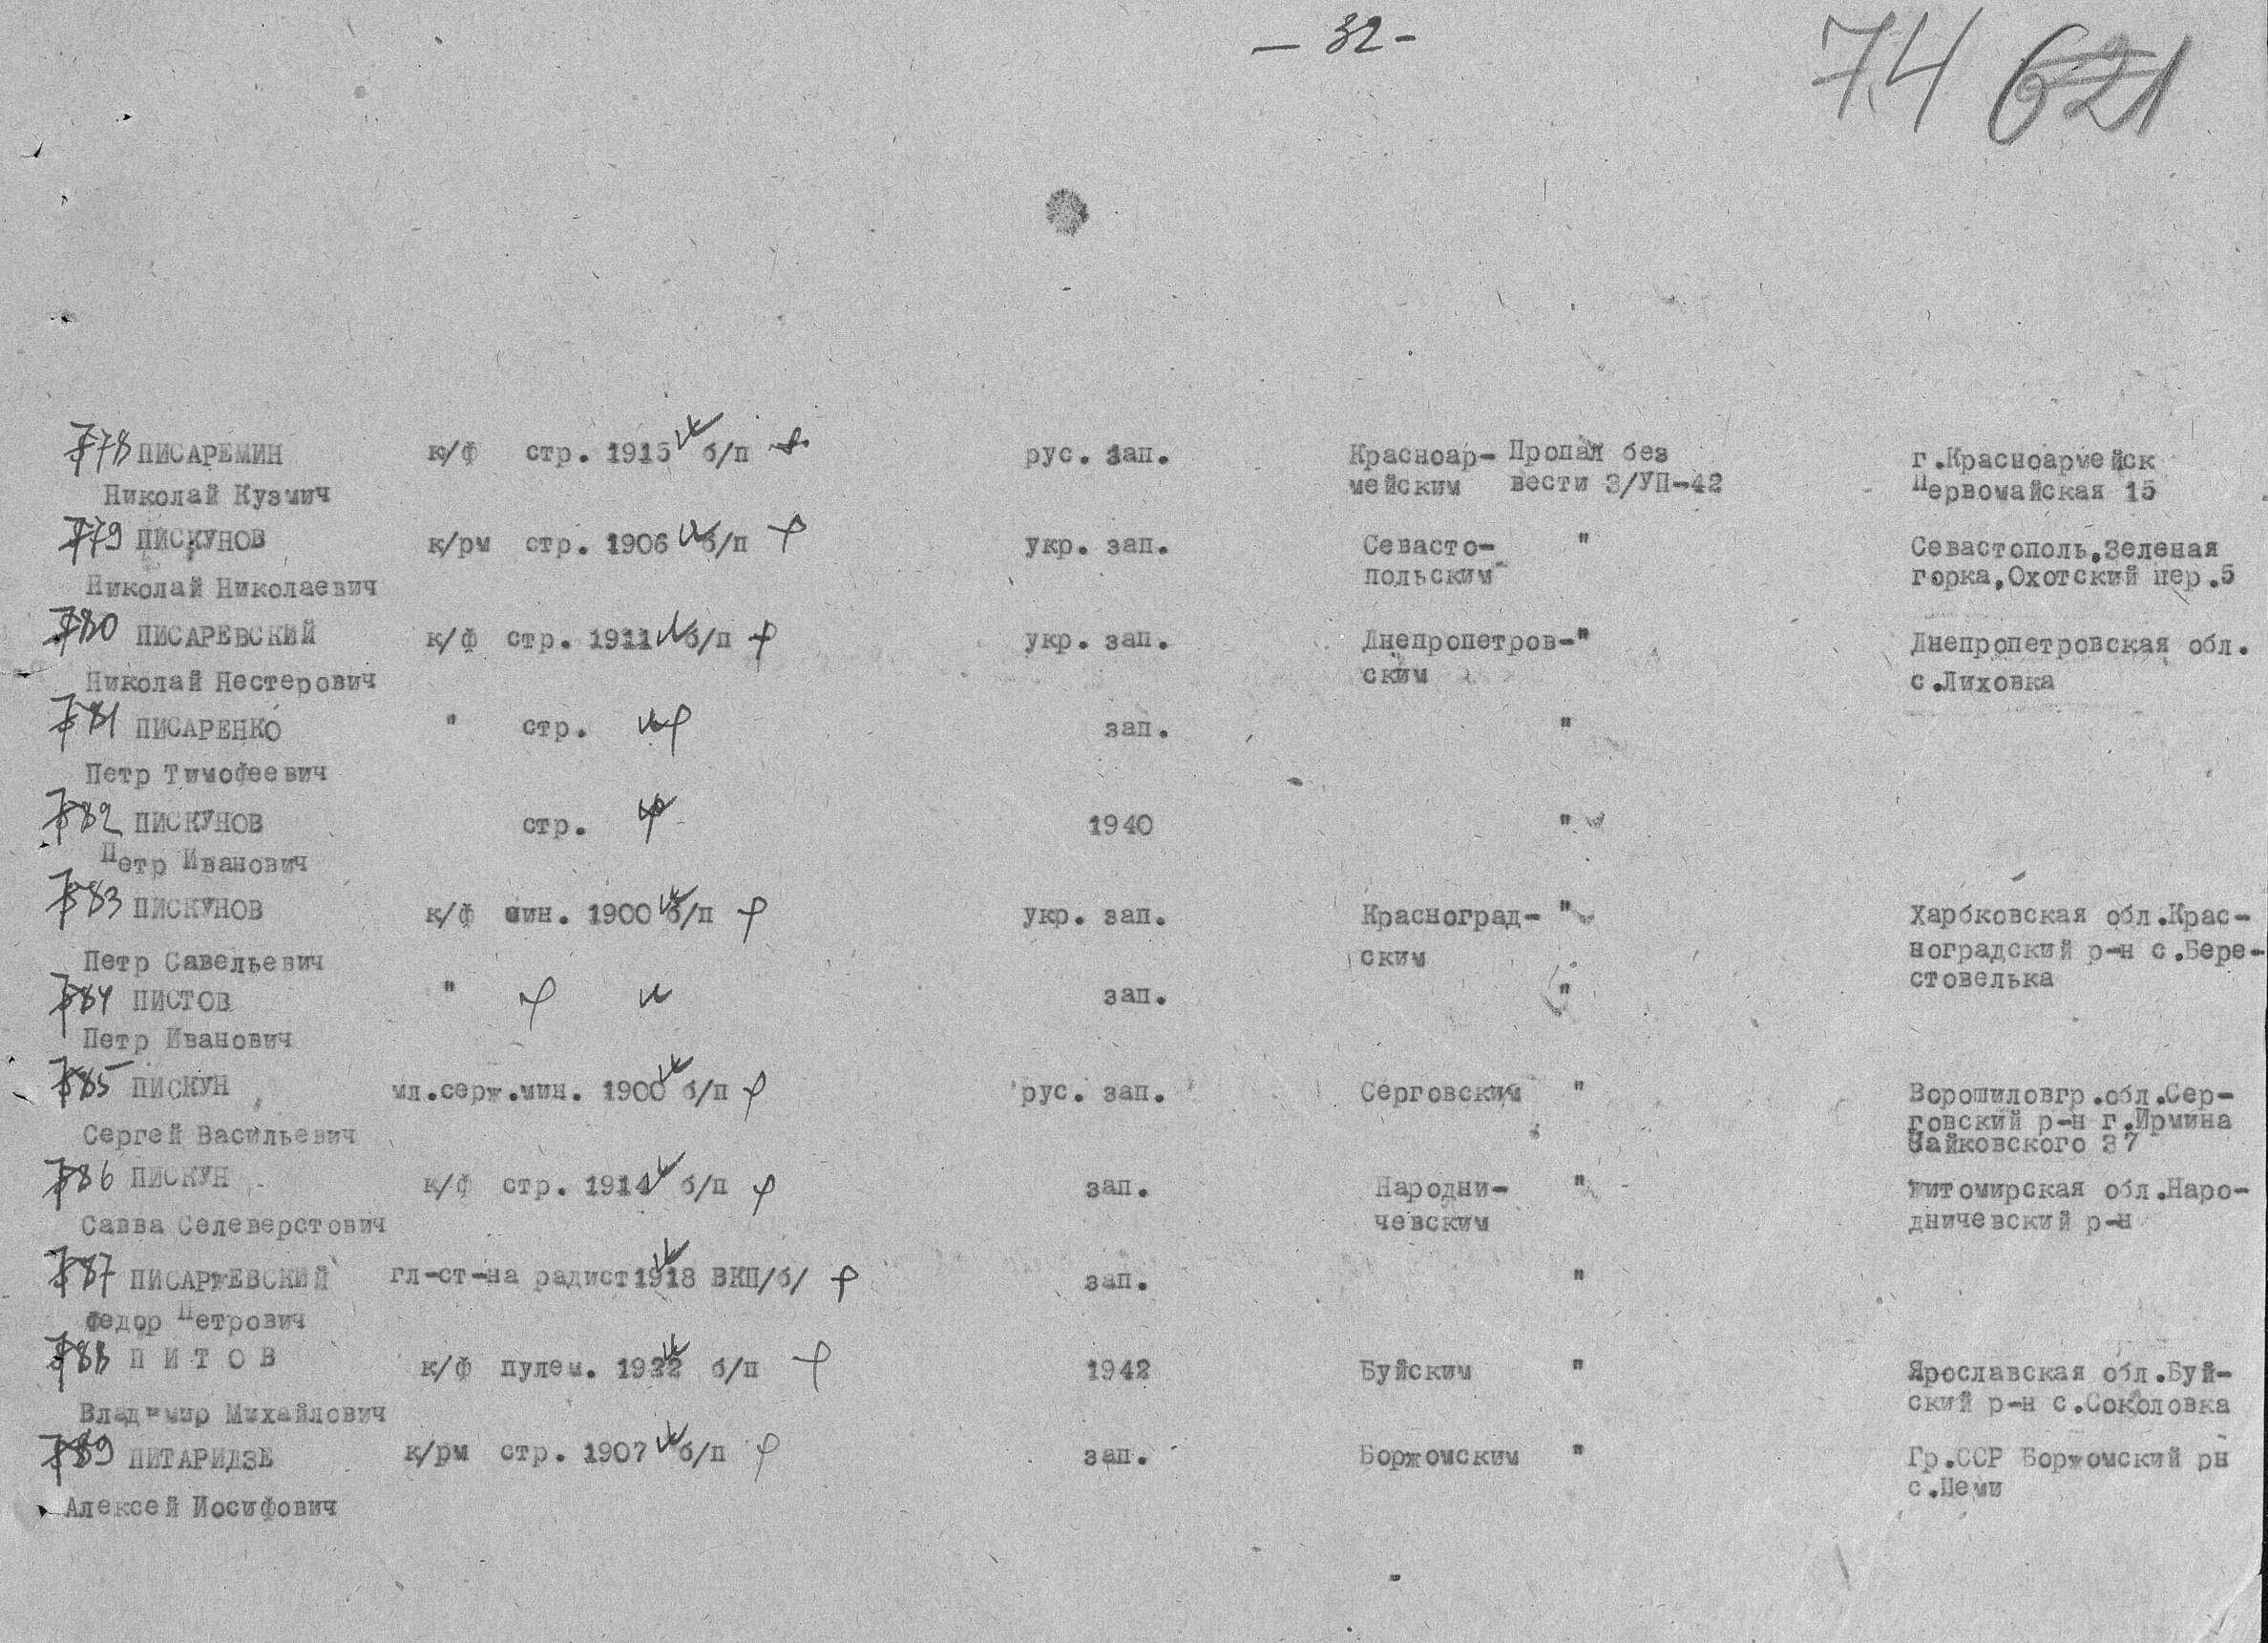 - 32 -
74 621
778 ПИСАРЕМИН к/ф стр. 1915 б/п рус. зап. Красноар- Пропал без г.Красноармейск
Николай Кузмич мейским вести 3/УП-42 Первомайская 15
779 ПИСКУНОВ к/рм стр. 1906 б/п укр. зап. Севасто- " Севастополь,Зеленая
Николай Николаевич польским горка,Охотский пер.5
780 ПИСАРЕВСКИЙ к/ф стр. 1911 б/п укр. зап. Днепропетров-" Днепропетровская обл.
Николай Нестерович ским с.Лиховка
781 ПИСАРЕНКО " стр. зап. "
Петр Тимофеевич
782 ПИСКУНОВ стр. 1940 "
Петр Иванович
783 ПИСКУНОВ к/ф мин. 1900 б/п укр. зап. Красноград- " Харбковская обл.Крас-
Петр Савельевич ским ноградский р-н с.Бере-
стовелька
784 ПИСТОВ " зап. "
Петр Иванович
785 ПИСКУН мл.серж.мин. 1900 б/п рус. зап. Серговским " Ворошиловгр.обл.Сер-
говский р-н г.Ирмина
Сергей Васильевич Чайковского 37
786 ПИСКУН к/ф стр. 1914 б/п зап. Народни- " житомирская обл.Наро-
Савва Селеверстович чевским дничевский р-н
787 ПИСАРЖЕВСКИЙ гл-ст-на радист1918 ВКП/б/ зап. "
Федор Петрович
788 П И Т О В к/ф пулем. 1922 б/п 1942 Буйским " Ярославская обл.Буй-
Владимир Михайлович ский р-н с.Соколовка
789 ПИТАРИДЗЕ к/рм стр. 1907 б/п зап. Боржомским " Гр.ССР Боржомский рн
Алексей Иосифович с.Цеми